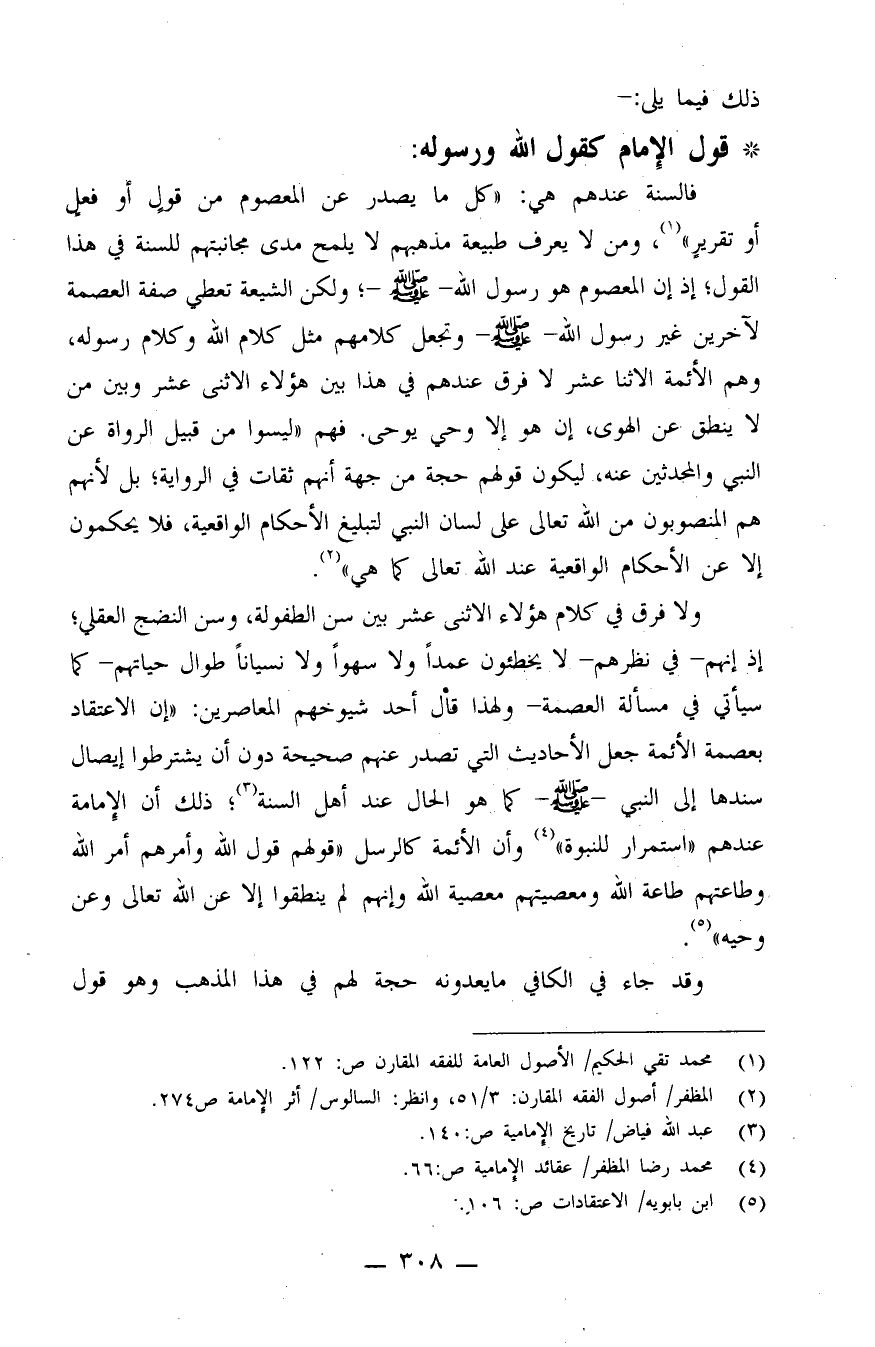 ذلك فيما يلي:–
* قول الإمام كقول الله ورسوله:
فالسنة عندهم هي: «كل ما يصدر عن المعصوم من قولٍ أو فعلٍ
أو تقريرٍ»(١)، ومن لا يعرف طبيعة مذهبهم لا يلمح مدى مجانبتهم للسنة في هذا
القول؛ إذ إن المعصوم هو رسول الله– ﷺ –؛ ولكن الشيعة تعطي صفة العصمة
لآخرين غير رسول الله– ﷺ– وتجعل كلامهم مثل كلام الله وكلام رسوله،
وهم الأئمة الاثنا عشر لا فرق عندهم في هذا بين هؤلاء الاثنى عشر وبين من
لا ينطق عن الهوى، إن هو إلا وحي يوحى. فهم «ليسوا من قبيل الرواة عن
النبي والمحدثين عنه، ليكون قولهم حجة من جهة أنهم ثقات في الرواية؛ بل لأنهم
هم المنصوبون من الله تعالى على لسان النبي لتبليغ الأحكام الواقعية، فلا يحكمون
إلا عن الأحكام الواقعية عند الله تعالى كما هي»(٢).
ولا فرق في كلام هؤلاء الاثنى عشر بين سن الطفولة، وسن النضج العقلي؛
إذ إنهم– في نظرهم– لا يخطئون عمداً ولا سهواً ولا نسياناً طوال حياتهم– كما
سيأتي في مسألة العصمة– ولهذا قال أحد شيوخهم المعاصرين: «إن الاعتقاد
بعصمة الأئمة جعل الأحاديث التي تصدر عنهم صحيحة دون أن يشترطوا إيصال
سندها إلى النبي –ﷺ– كما هو الحال عند أهل السنة(٣)؛ ذلك أن الإمامة
عندهم «استمرار للنبوة»(٤) وأن الأئمة كالرسل «قولهم قول الله وأمرهم أمر الله
وطاعتهم طاعة الله ومعصيتهم معصية الله وإنهم لم ينطقوا إلا عن الله تعالى وعن
وحيه»(٥).
وقد جاء في الكافي مايعدونه حجة لهم في هذا المذهب وهو قول
(١) محمد تقي الحكيم/ الأصول العامة للفقه المقارن ص: ١٢٢.
(٢) المظفر/ أصول الفقه المقارن: ٥١/٣، وانظر: السالوس/ أثر الإمامة ص٢٧٤.
(٣) عبد الله فياض/ تاريخ الإمامية ص:١٤٠.
(٤) محمد رضا المظفر/ عقائد الإمامية ص:٦٦.
(٥) ابن بابويه/ الاعتقادات ص: ١٠٦.
— ٣٠٨ —